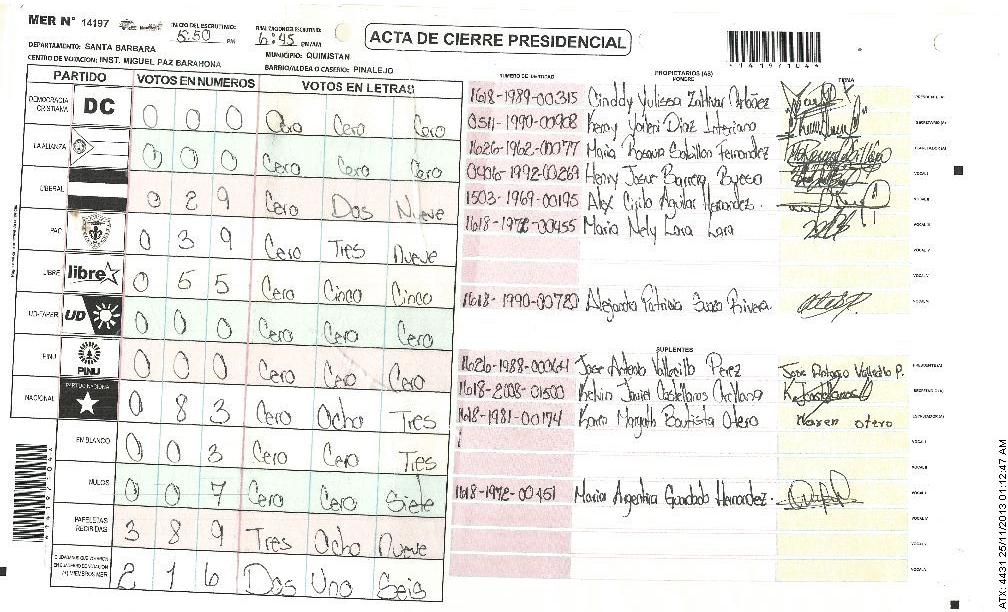 MER N° 14197
INICIO DEL ESCRUTINIO: 5:50 PM
6:45 PM
ACTA DE CIERRE PRESIDENCIAL
DEPARTAMENTO: SANTA BARBARA
MUNICIPIO: QUIMISTAN
CENTRO DE VOTACION: INST. MIGUEL PAZ BARAHONA
BARRIO/ALDEA O CASERIO: PINALEJO
PARTIDO VOTOS EN NUMEROS VOTOS EN LETRAS
DEMOCRACIA CRISTIANA DC 0 0 0 Cero Cero Cero
LA ALIANZA 0 0 0 Cero Cero Cero
LIBERAL 0 2 9 Cero Dos Nueve
PAC 0 3 9 Cero Tres Nueve
LIBRE libre 0 5 5 Cero Cinco Cinco
UD-FAPER UD 0 0 0 Cero Cero Cero
PINU PINU 0 0 0 Cero Cero Cero
NACIONAL PARTIDO NACIONAL 0 8 3 Cero Ocho Tres
EN BLANCO 0 0 3 Cero Cero Tres
NULOS 0 0 7 Cero Cero Siete
PAPELETAS RECIBIDAS 3 8 9 Tres Ocho Nueve
2 1 6 Dos Uno Seis
NUMERO DE IDENTIDAD PROPIETARIOS (AS) NOMBRE FIRMA
1618-1989-00315
0511-1990-00908 Diaz Interiano
1626-1962-00077 Maria Fernandez
0406-1992-00269 Henry Josue Barrera
1503-1969-00195 Alex Cirilo Aguilar Hernandez.
1618-1972-00455 Maria Nely Lara Lara
1618-1990-00720 Alejandra Patricia Rivera
SUPLENTES
1626-1988-00061 Jose Antonio Vallecillo Perez
1618-2008-01500 Kelvin Javier Castellanos Orellana
1618-1981-00174 Karen Margoth Bautista Otero Karen otero
1618-1972-00451 Maria Argentina Hernandez.
4 1 4 1 9 7 1 0 4 4
ATX: 4431 25/11/2013 01:12:47 AM